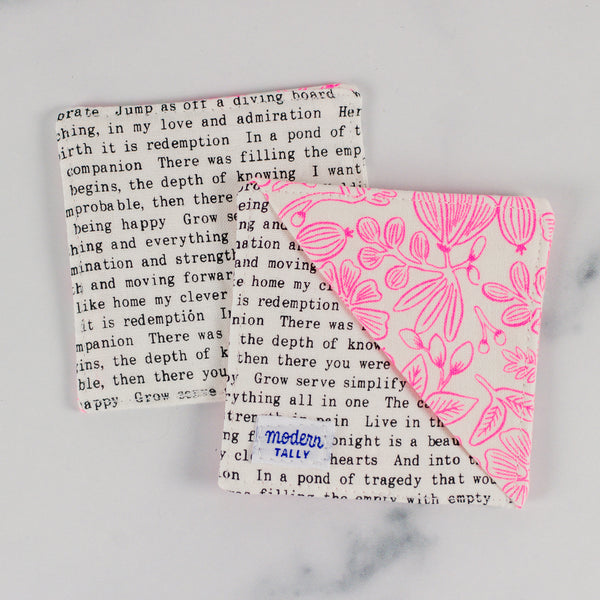 orate Jump as off a diving board
ching, in my love and admiration Her
irth it is redemption In a pond of t
companion There was filling the emp
begins, the depth of knowing I want
mprobable, then there
being happy Grow se
hing and everything
mination and strength
th and moving forwar
like home my clever
it is redemption In
mpanion There was
ins, the depth of k
ble, then there you
appy Grow serve
eing
ng and
nation an
and moving
e home my cl
is redemption
nion There was
the depth of know
then there you were
y Grow serve simplify
rything all in one The c
trength in pain Live in th
ng f onight is a beau
y cl hearts And into t
on In a pond of tragedy that wou
was filling the empty with empty
modern
TALLY